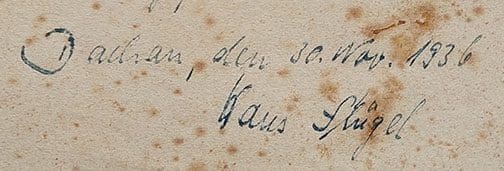 Dachau, den 30. Nov. 1936
Hans Flügel